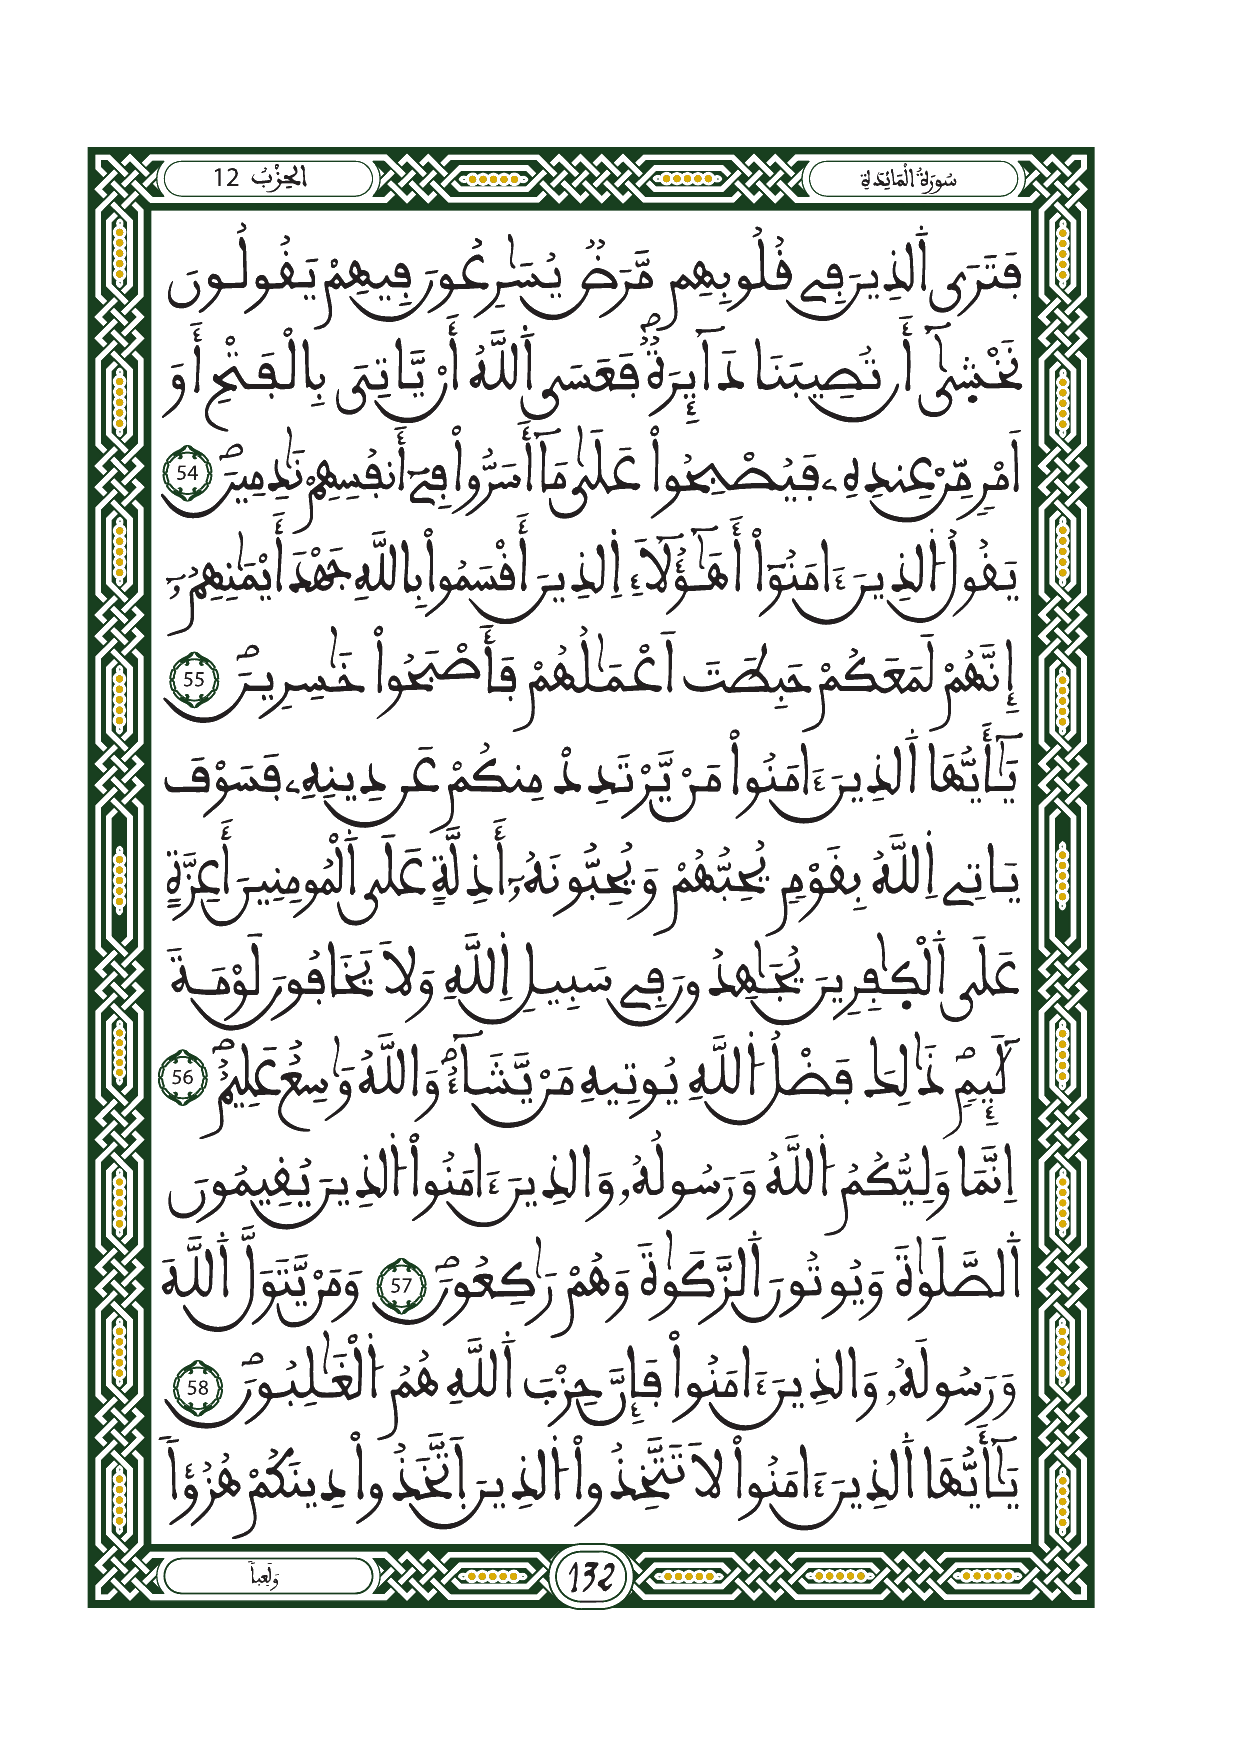 سُورَةُ الْمَائِدَةِ
الحِزْبُ 12
فَتَرَى اَ۬لذِينَ فِے قُلُوبِهِم مَّرَضٞ يُسَٰرِعُونَ فِيهِمْ يَقُولُونَ
نَخْش۪ىٰٓ أَن تُصِيبَنَا دَآئِرَةٞۖ فَعَسَى اَ۬للَّهُ أَنْ يَّاتِيَ بِالْفَتْحِ أَوَ
اَمْرٖ مِّنْ عِندِهِۦ فَيُصْبِحُواْ عَلَىٰ مَآ أَسَرُّواْ فِےٓ أَنفُسِهِمْ نَٰدِمِينَۖ 54
يَقُولُ اُ۬لذِينَ ءَامَنُوٓاْ أَهَٰٓؤُلَآءِ اِ۬لذِينَ أَقْسَمُواْ بِاللَّهِ جَهْدَ أَيْمَٰنِهِمُۥٓ
إِنَّهُمْ لَمَعَكُمْ حَبِطَتَ اَعْمَٰلُهُمْ فَأَصْبَحُواْ خَٰسِرِينَۖ 55
يَٰٓأَيُّهَا اَ۬لذِينَ ءَامَنُواْ مَنْ يَّرْتَدِدْ مِنكُمْ عَن دِينِهِۦ فَسَوْفَ
يَاتِے اِ۬للَّهُ بِقَوْمٖ يُحِبُّهُمْ وَيُحِبُّونَهُۥٓ أَذِلَّةٍ عَلَى اَ۬لْمُومِنِينَ أَعِزَّةٍ
عَلَى اَ۬لْكٰ۪فِرِينَ يُجَٰهِدُونَ فِے سَبِيلِ اِ۬للَّهِ وَلَا يَخَافُونَ لَوْمَةَ
لَآئِمٖۖ ذَٰلِكَ فَضْلُ اُ۬للَّهِ يُوتِيهِ مَنْ يَّشَآءُۖ وَاللَّهُ وَٰسِعٌ عَلِيمٌۖ 56
اِنَّمَا وَلِيُّكُمُ اُ۬للَّهُ وَرَسُولُهُۥ وَالذِينَ ءَامَنُواْ اُ۬لذِينَ يُقِيمُونَ
اَ۬لصَّلَوٰةَ وَيُوتُونَ اَ۬لزَّكَوٰةَ وَهُمْ رَٰكِعُونَۖ 57 وَمَنْ يَّتَوَلَّ اَ۬للَّهَ
وَرَسُولَهُۥ وَالذِينَ ءَامَنُواْ فَإِنَّ حِزْبَ اَ۬للَّهِ هُمُ اُ۬لْغَٰلِبُونَۖ 58
يَٰٓأَيُّهَا اَ۬لذِينَ ءَامَنُواْ لَا تَتَّخِذُواْ اُ۬لذِينَ اَ۪تَّخَذُواْ دِينَكُمْ هُزُؤاٗ
وَلَعِباٗ
132